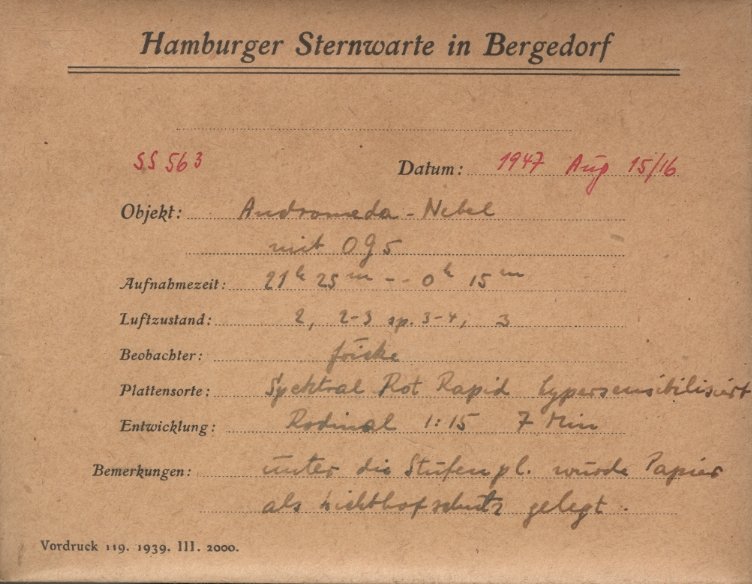 Hamburger Sternwarte in Bergedorf
SS 563 Datum: 1947 Aug 15/16
Objekt: Andromeda-Nebel
mit OG5
Aufnahmezeit: 21h 25m -- 0h 15m
Luftzustand: 2, 2-3 sp. 3-4, 3
Beobachter:
Plattensorte: Spektral Rot Rapid hypersensibilisiert
Entwicklung: Rodinal 1:15 7 Min
Bemerkungen: unter die Stufenpl. wurde Papier
als Lichthofschutz gelegt.
Vordruck 119. 1939. III. 2000.